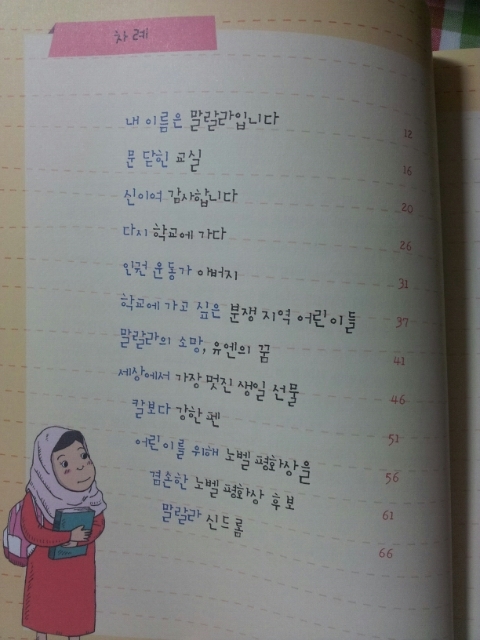 차례
내 이름은 말랄라입니다 12
문 닫힌 교실 16
신이여 감사합니다 20
다시 학교에 가다 26
인권 운동가 아버지 31
학교에 가고 싶은 분쟁 지역 어린이들 37
말랄라의 소망, 유엔의 꿈 41
세상에서 가장 멋진 생일 선물 46
칼보다 강한 펜 51
어린이를 위해 노벨 평화상을 56
겸손한 노벨 평화상 후보 61
말랄라 신드롬 66